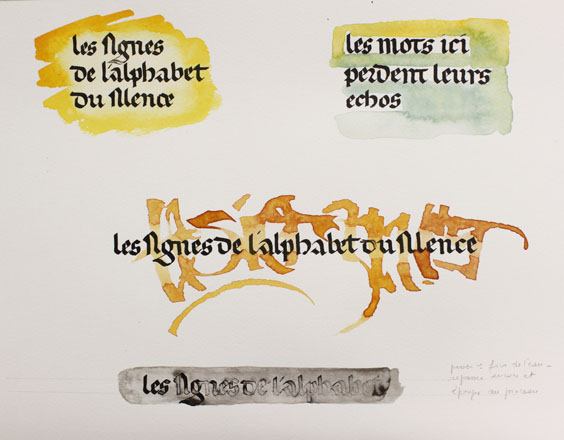 les signes
de l'alphabet
du silence
les mots ici
perdent leurs
echos
les signes de l'alphabet du silence
les signes de l'alphabet
de l'eau
encore et
au pinceau